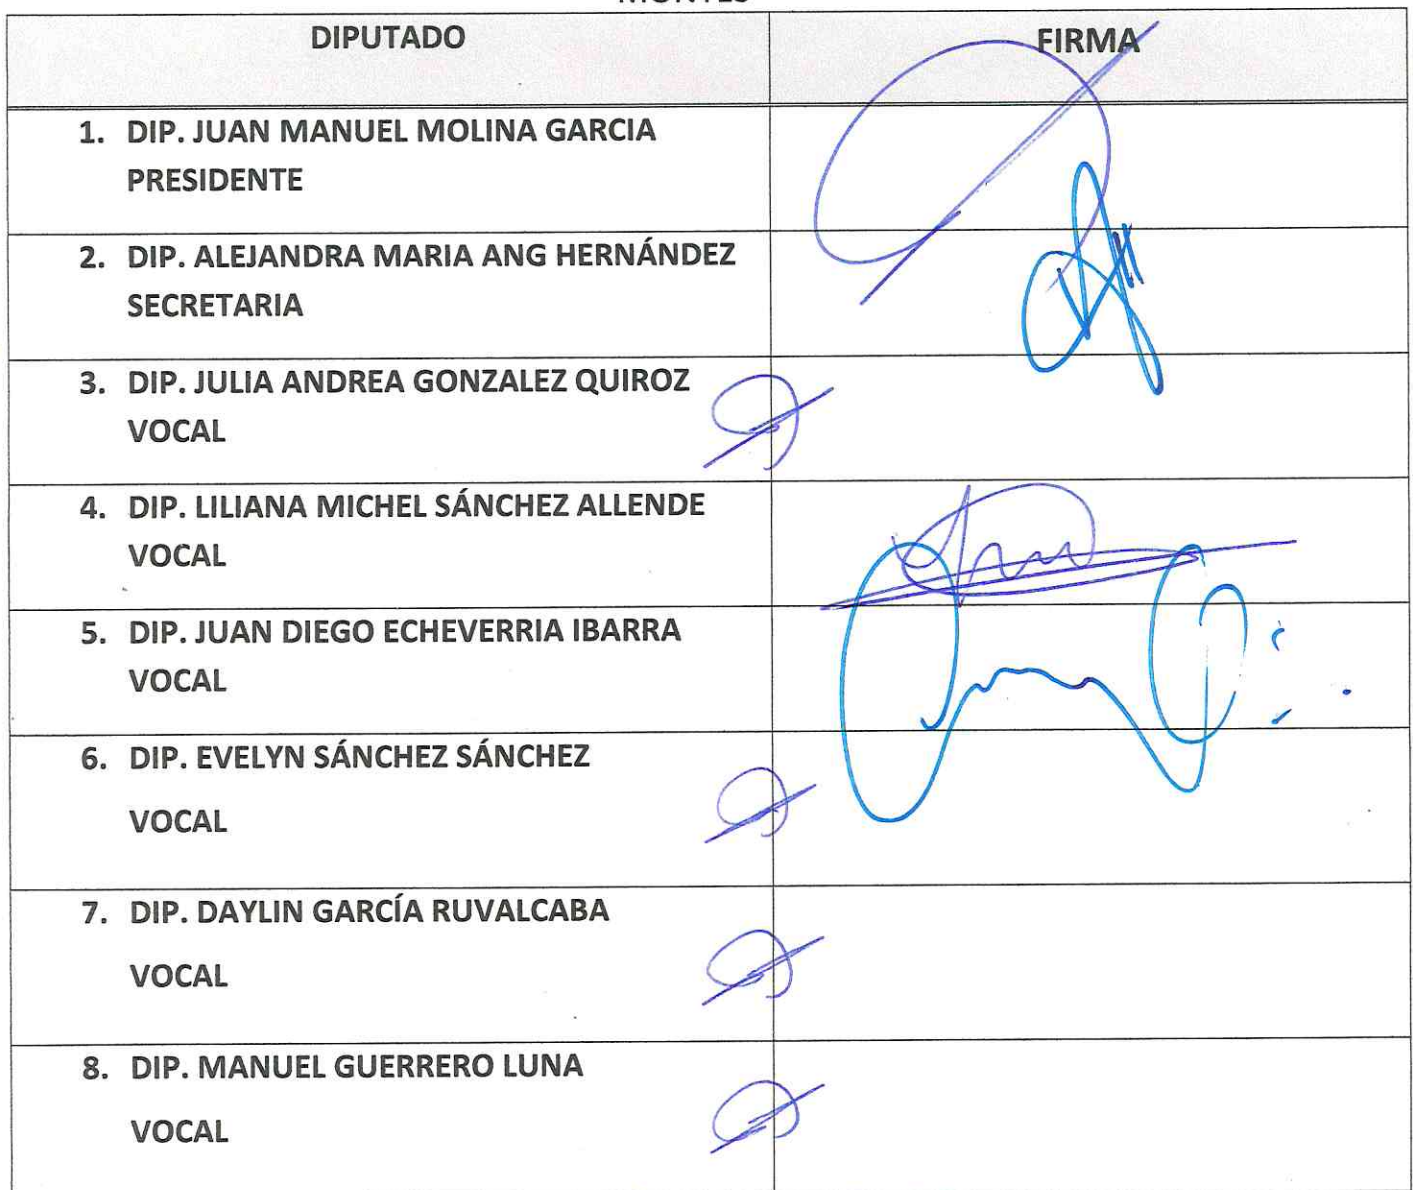 DIPUTADO FIRMA
1. DIP. JUAN MANUEL MOLINA GARCIA
PRESIDENTE
2. DIP. ALEJANDRA MARIA ANG HERNÁNDEZ
SECRETARIA
3. DIP. JULIA ANDREA GONZALEZ QUIROZ
VOCAL
4. DIP. LILIANA MICHEL SÁNCHEZ ALLENDE
VOCAL
5. DIP. JUAN DIEGO ECHEVERRIA IBARRA
VOCAL
6. DIP. EVELYN SÁNCHEZ SÁNCHEZ
VOCAL
7. DIP. DAYLIN GARCÍA RUVALCABA
VOCAL
8. DIP. MANUEL GUERRERO LUNA
VOCAL